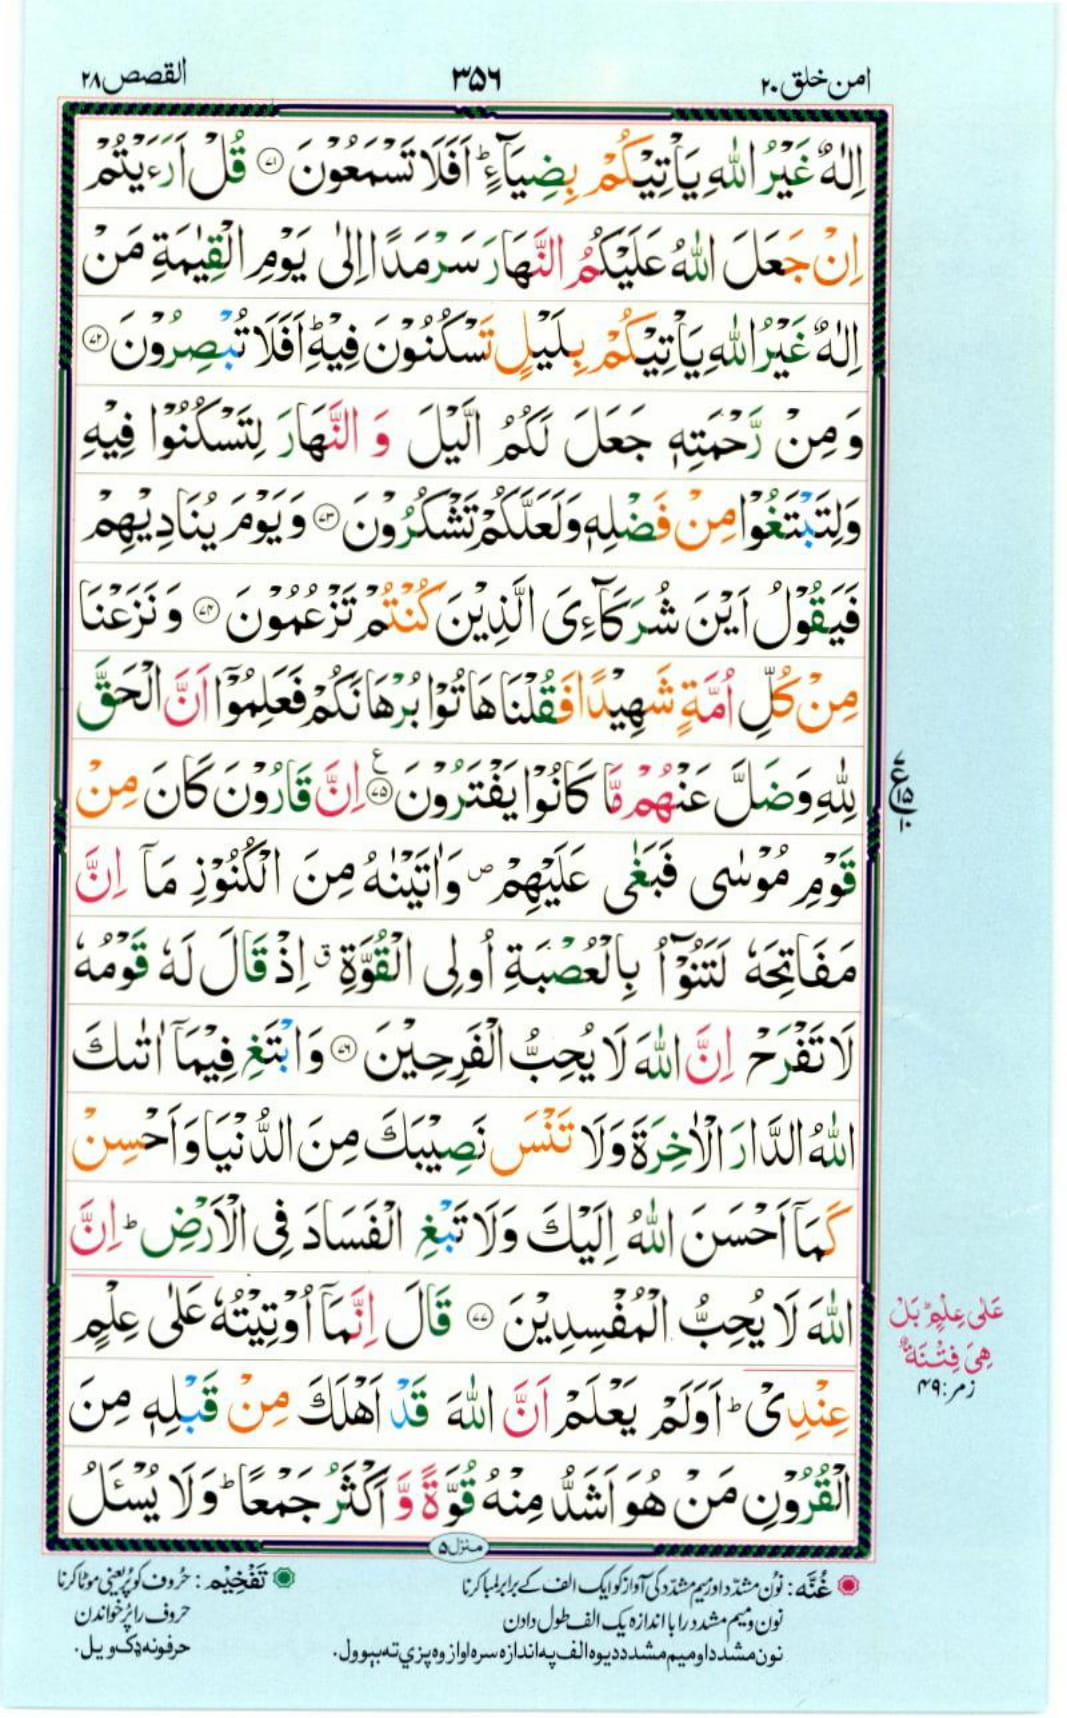 امن خلق ۲۰
۳۵۶
القصص ۲۸
اِلٰهٌ غَيْرُ اللّٰهِ يَاْتِيْكُمْ بِضِيَآءٍ ؕ اَفَلَا تَسْمَعُوْنَ ۷۱ قُلْ اَرَءَيْتُمْ
اِنْ جَعَلَ اللّٰهُ عَلَيْكُمُ النَّهَارَ سَرْمَدًا اِلٰى يَوْمِ الْقِيٰمَةِ مَنْ
اِلٰهٌ غَيْرُ اللّٰهِ يَاْتِيْكُمْ بِلَيْلٍ تَسْكُنُوْنَ فِيْهِ ؕ اَفَلَا تُبْصِرُوْنَ ۷۲
وَ مِنْ رَّحْمَتِهٖ جَعَلَ لَكُمُ الَّيْلَ وَ النَّهَارَ لِتَسْكُنُوْا فِيْهِ
وَلِتَبْتَغُوْا مِنْ فَضْلِهٖ وَلَعَلَّكُمْ تَشْكُرُوْنَ ۷۳ وَيَوْمَ يُنَادِيْهِمْ
فَيَقُوْلُ اَيْنَ شُرَكَآءِىَ الَّذِيْنَ كُنْتُمْ تَزْعُمُوْنَ ۷۴ وَ نَزَعْنَا
مِنْ كُلِّ اُمَّةٍ شَهِيْدًا فَقُلْنَا هَاتُوْا بُرْهَانَكُمْ فَعَلِمُوْۤا اَنَّ الْحَقَّ
لِلّٰهِ وَضَلَّ عَنْهُمْ مَّا كَانُوْا يَفْتَرُوْنَ ۷۵ ع اِنَّ قَارُوْنَ كَانَ مِنْ
قَوْمِ مُوْسٰى فَبَغٰى عَلَيْهِمْ ص وَاٰتَيْنٰهُ مِنَ الْكُنُوْزِ مَاۤ اِنَّ
مَفَاتِحَهٗ لَتَنُوْٓاُ بِالْعُصْبَةِ اُولِى الْقُوَّةِ ق اِذْ قَالَ لَهٗ قَوْمُهٗ
لَا تَفْرَحْ اِنَّ اللّٰهَ لَا يُحِبُّ الْفَرِحِيْنَ ۷۶ وَابْتَغِ فِيْمَاۤ اٰتٰىكَ
اللّٰهُ الدَّارَ الْاٰخِرَةَ وَلَا تَنْسَ نَصِيْبَكَ مِنَ الدُّنْيَا وَاَحْسِنْ
كَمَاۤ اَحْسَنَ اللّٰهُ اِلَيْكَ وَلَا تَبْغِ الْفَسَادَ فِى الْاَرْضِ ؕ اِنَّ
اللّٰهَ لَا يُحِبُّ الْمُفْسِدِيْنَ ۷۷ قَالَ اِنَّمَاۤ اُوْتِيْتُهٗ عَلٰى عِلْمٍ
عِنْدِىْ ؕ اَوَلَمْ يَعْلَمْ اَنَّ اللّٰهَ قَدْ اَهْلَكَ مِنْ قَبْلِهٖ مِنَ
الْقُرُوْنِ مَنْ هُوَ اَشَدُّ مِنْهُ قُوَّةً وَّ اَكْثَرُ جَمْعًا ؕ وَلَا يُسْـَٔلُ
۷
ع
۱۵
۱۰
عَلٰى عِلْمٍ ؕ بَلْ
هِىَ فِتْنَةٌ
زمر: ۴۹
منزل ۵
غُنَّه: نُون مشدّد اور میم مشدّد کی آواز کو ایک الف کے برابر لمبا کرنا
نون و میم مشدد را با اندازہ یک الف طول دادن
نون مشدد او میم مشدد د یوه الف په اندازه سره اواز وه پزي ته بېوول.
تَفْخِیْم: حُروف کو پُر یعنی موٹا کرنا
حروف را پُر خواندن
حرفونه ډک ویل.